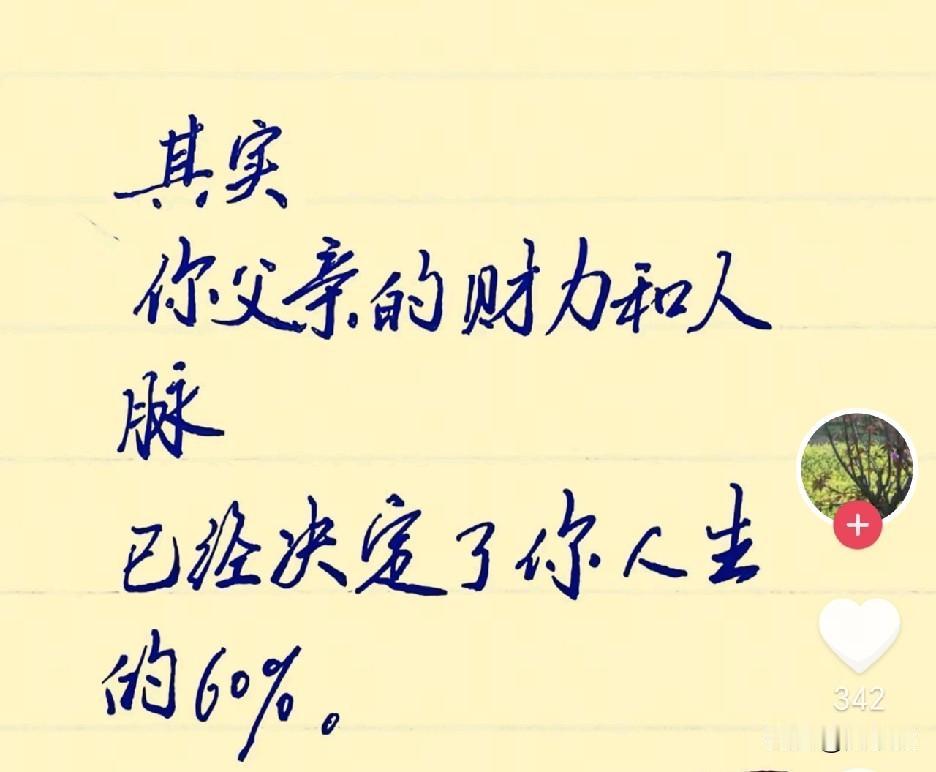 其实
你父亲的财力和人
脉
已经决定了你人生
的60%。
342